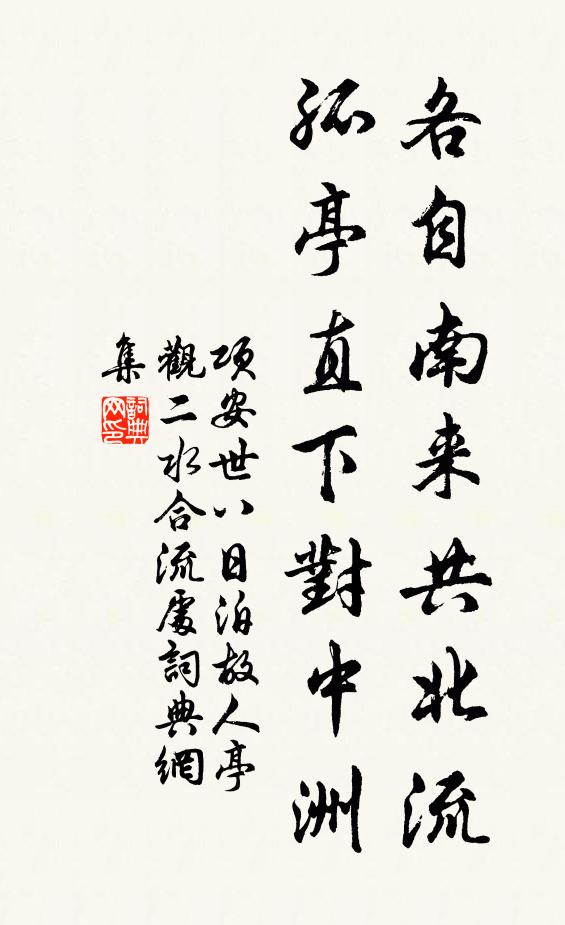 各自南来共北流
孤亭直下對中洲
项安世八日泊故人亭
觀二水合流處詞典網
集
詞典
网印